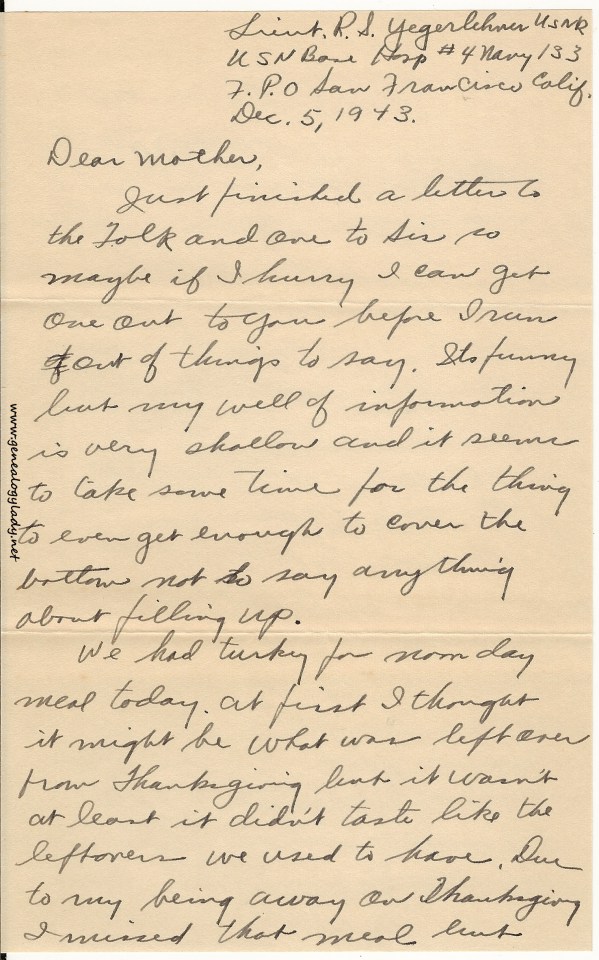 Lieut. R. S. Yegerlehner USNR
USN Base Hosp #4 Navy 133
F.P.O San Francisco Calif.
Dec. 5, 1943.
Dear Mother,
Just finished a letter to
the Folk and one to Sis so
maybe if I hurry I can get
one out to you before I run
out of things to say. Its funny
but my well of information
is very shallow and it seems
to take some time for the thing
to even get enough to cover the
bottom not to say anything
about filling up.
We had turkey for noon day
meal today. At first I thought
it might be what was left over
from Thanksgiving but it wasn't
at least it didn't taste like the
leftovers we used to have. Due
to my being away on Thanksgiving
I missed that meal but
www.genealogylady.net